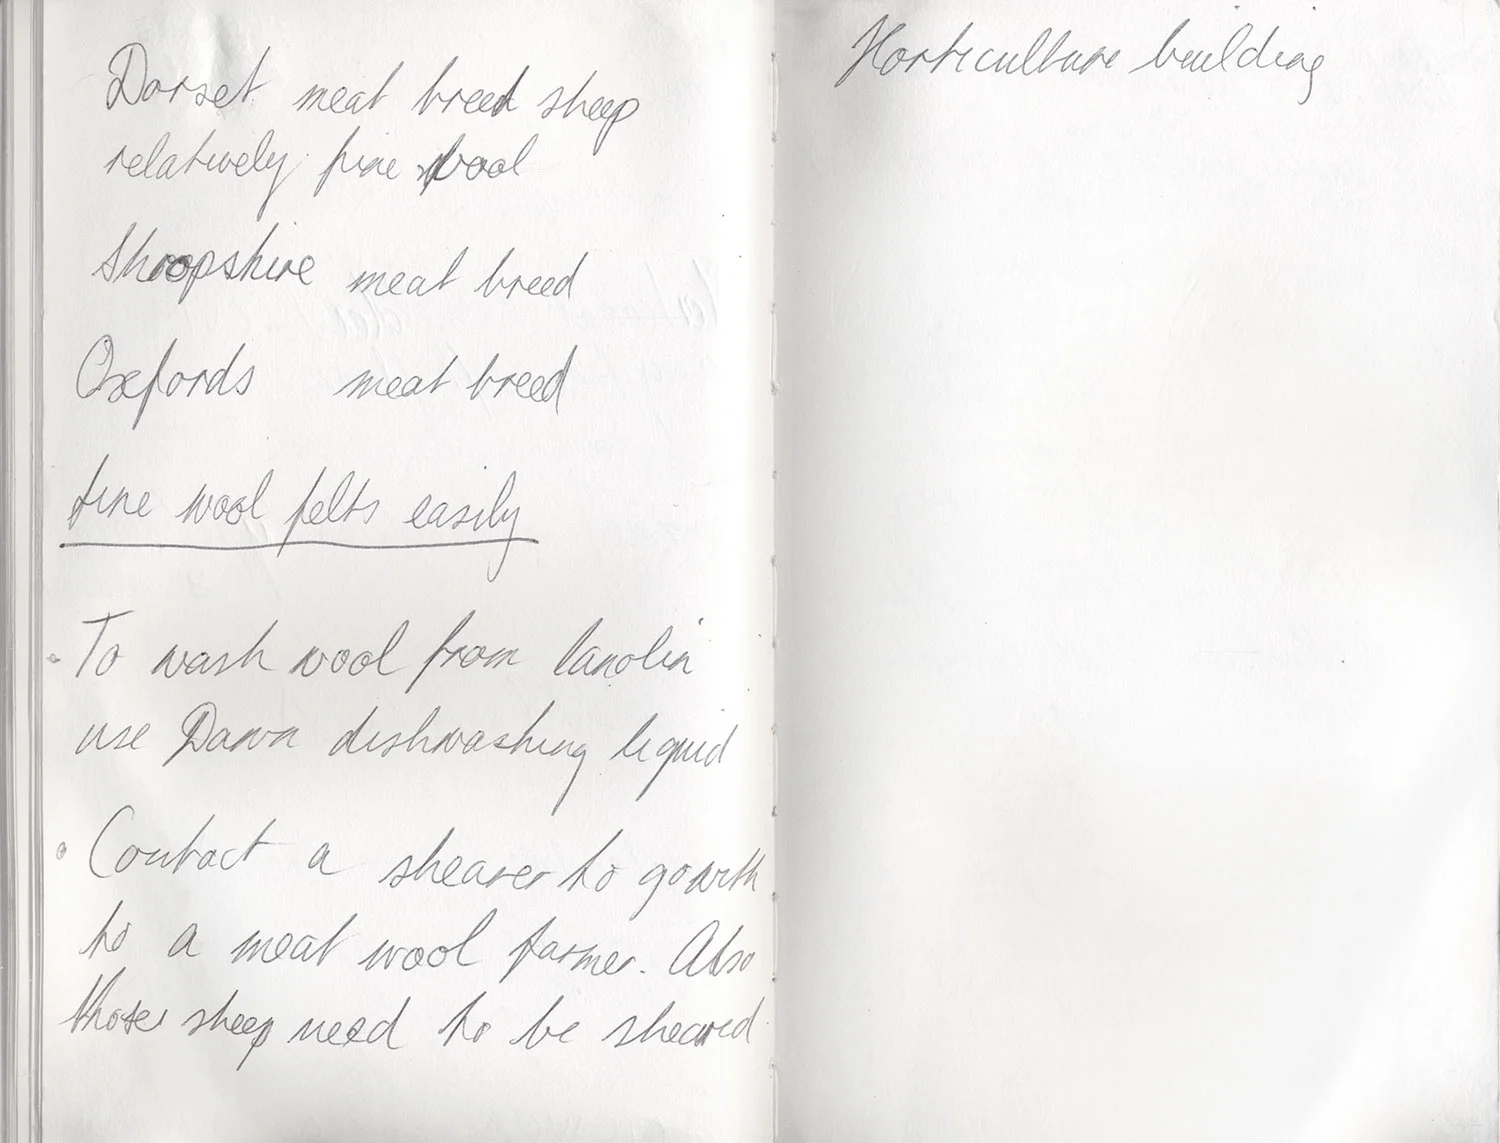 Dorset meat breed sheep
relatively fine wool
Shropshire meat breed
Oxfords meat breed
fine wool felts easily
To wash wool from lanolin
use Dawn dishwashing liquid
Contact a shearer to go with
to a meat wool farmer. Also
those sheep need to be sheared
Horticulture building